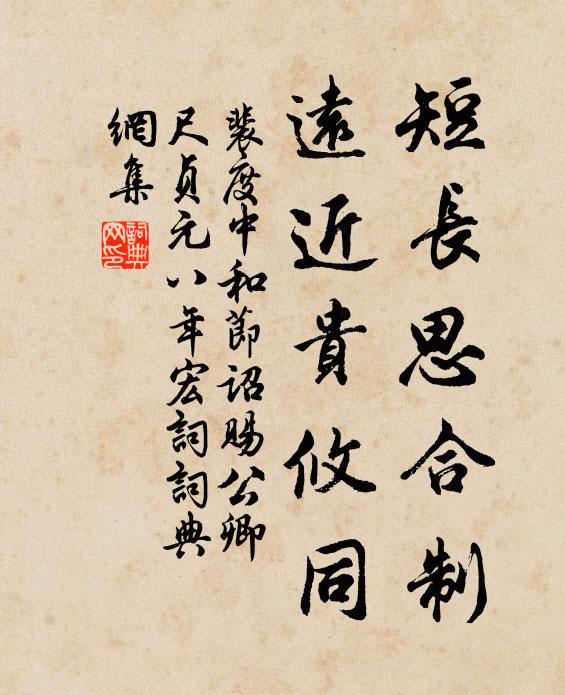 短長思合制
遠近貴攸同
裴度中和節詔賜公卿
尺貞元八年宏詞詞典
網集
詞典
网印